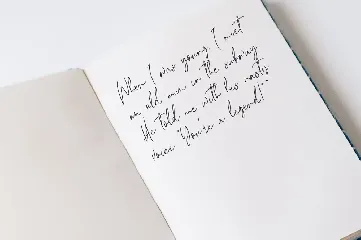 When I was young, I met
an old man in the
He told me with his
voice "You're a legend!"